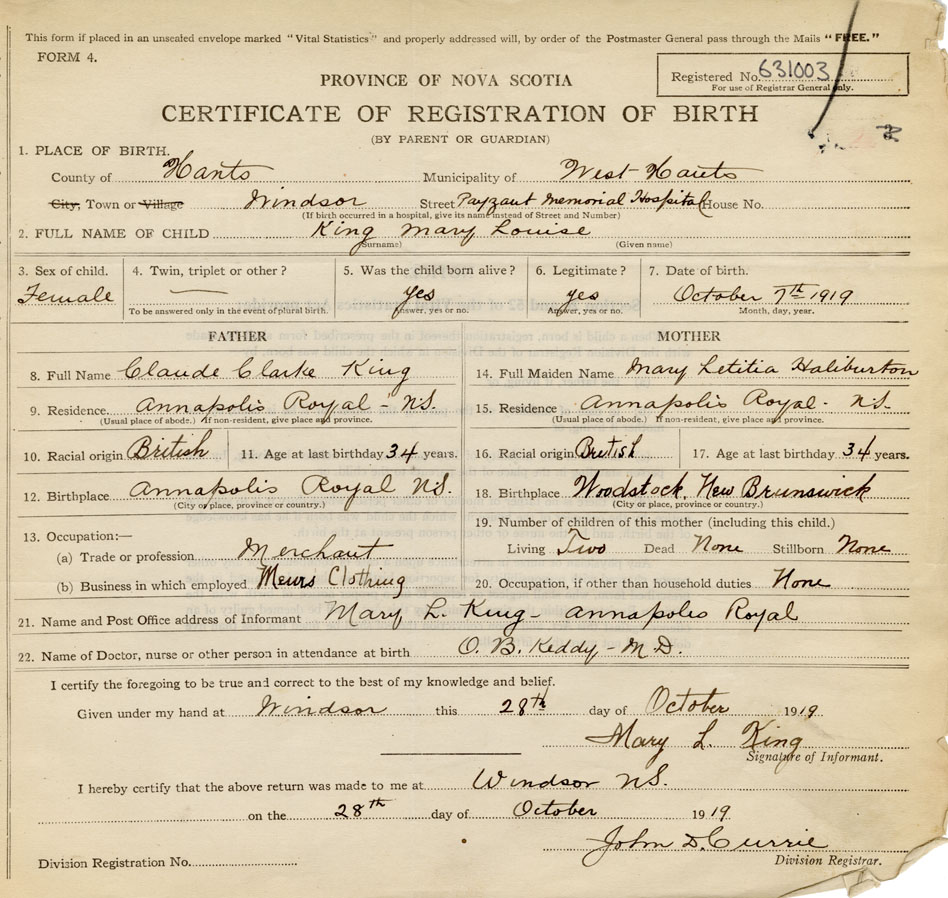 This form if placed in an unsealed envelope marked "Vital Statistics" and properly addressed will, by order of the Postmaster General pass through the Mails "FREE."
FORM 4.
Registered No. 631003
For use of Registrar General only.
PROVINCE OF NOVA SCOTIA
CERTIFICATE OF REGISTRATION OF BIRTH
(BY PARENT OR GUARDIAN)
1. PLACE OF BIRTH.
County of Hants Municipality of West Hants
City, Town or Village Windsor Street Payzant Memorial Hospital House No.
(If birth occurred in a hospital, give its name instead of Street and Number)
2. FULL NAME OF CHILD King Mary Louise
(Surname) (Given name)
3. Sex of child. 4. Twin, triplet or other? 5. Was the child born alive? 6. Legitimate? 7. Date of birth.
Female — yes yes October 7th 1919
To be answered only in the event of plural birth. Answer, yes or no. Answer, yes or no. Month, day, year.
FATHER MOTHER
8. Full Name Claude Clarke King 14. Full Maiden Name Mary Letitia Haliburton
9. Residence. Annapolis Royal - N.S. 15. Residence Annapolis Royal - N.S.
(Usual place of abode.) If non-resident, give place and province. (Usual place of abode.) If non-resident, give place and province.
10. Racial origin British 11. Age at last birthday 34 years. 16. Racial origin British 17. Age at last birthday 34 years.
12. Birthplace Annapolis Royal N.S. 18. Birthplace Woodstock, New Brunswick
(City or place, province or country.) (City or place, province or country.)
13. Occupation:— 19. Number of children of this mother (including this child.)
(a) Trade or profession Merchant Living Two Dead None Stillborn None
(b) Business in which employed Mens Clothing 20. Occupation, if other than household duties None
21. Name and Post Office address of Informant Mary L. King - Annapolis Royal
22. Name of Doctor, nurse or other person in attendance at birth O. B. Keddy - M.D.
I certify the foregoing to be true and correct to the best of my knowledge and belief.
Given under my hand at Windsor this 28th day of October 1919.
Mary L. King
Signature of Informant.
I hereby certify that the above return was made to me at Windsor N.S.
on the 28th day of October 1919.
John D. Currie
Division Registration No. Division Registrar.